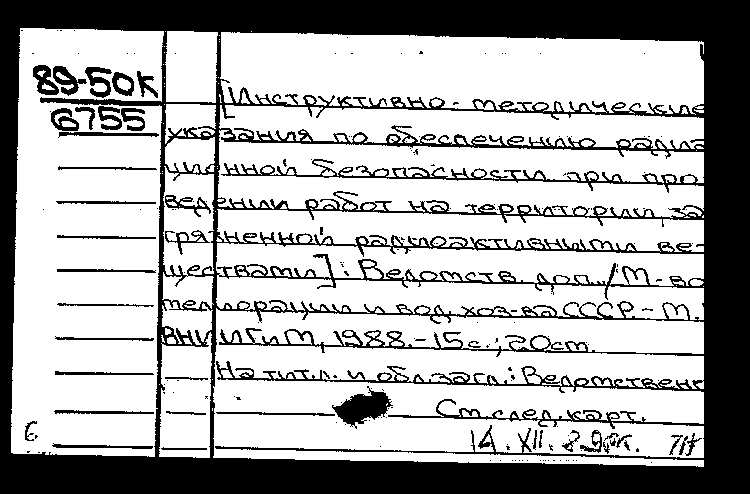 89-50К
6755
[Инструктивно-методические
указания по обеспечению радиа
ционной безопасности при про-
ведении работ на территории, за
грязненной радиоактивными ве-
ществами]: Ведомств. доп./М-во
мелиорации и вод. хоз-ва СССР.- М.:
ВНИИГиМ, 1988.-15с.; 20см.
На тит.л. и обл.загл.: Ведомственн
См. след. карт.
6
14. XII. 89